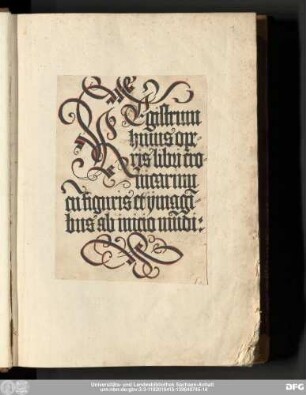 Registrum
huius ope-
ris libri cro-
nicarum
cū figuris et ymagī-
bus ab inicio mūdi:
Universitäts- und Landesbibliothek Sachsen-Anhalt
DFG